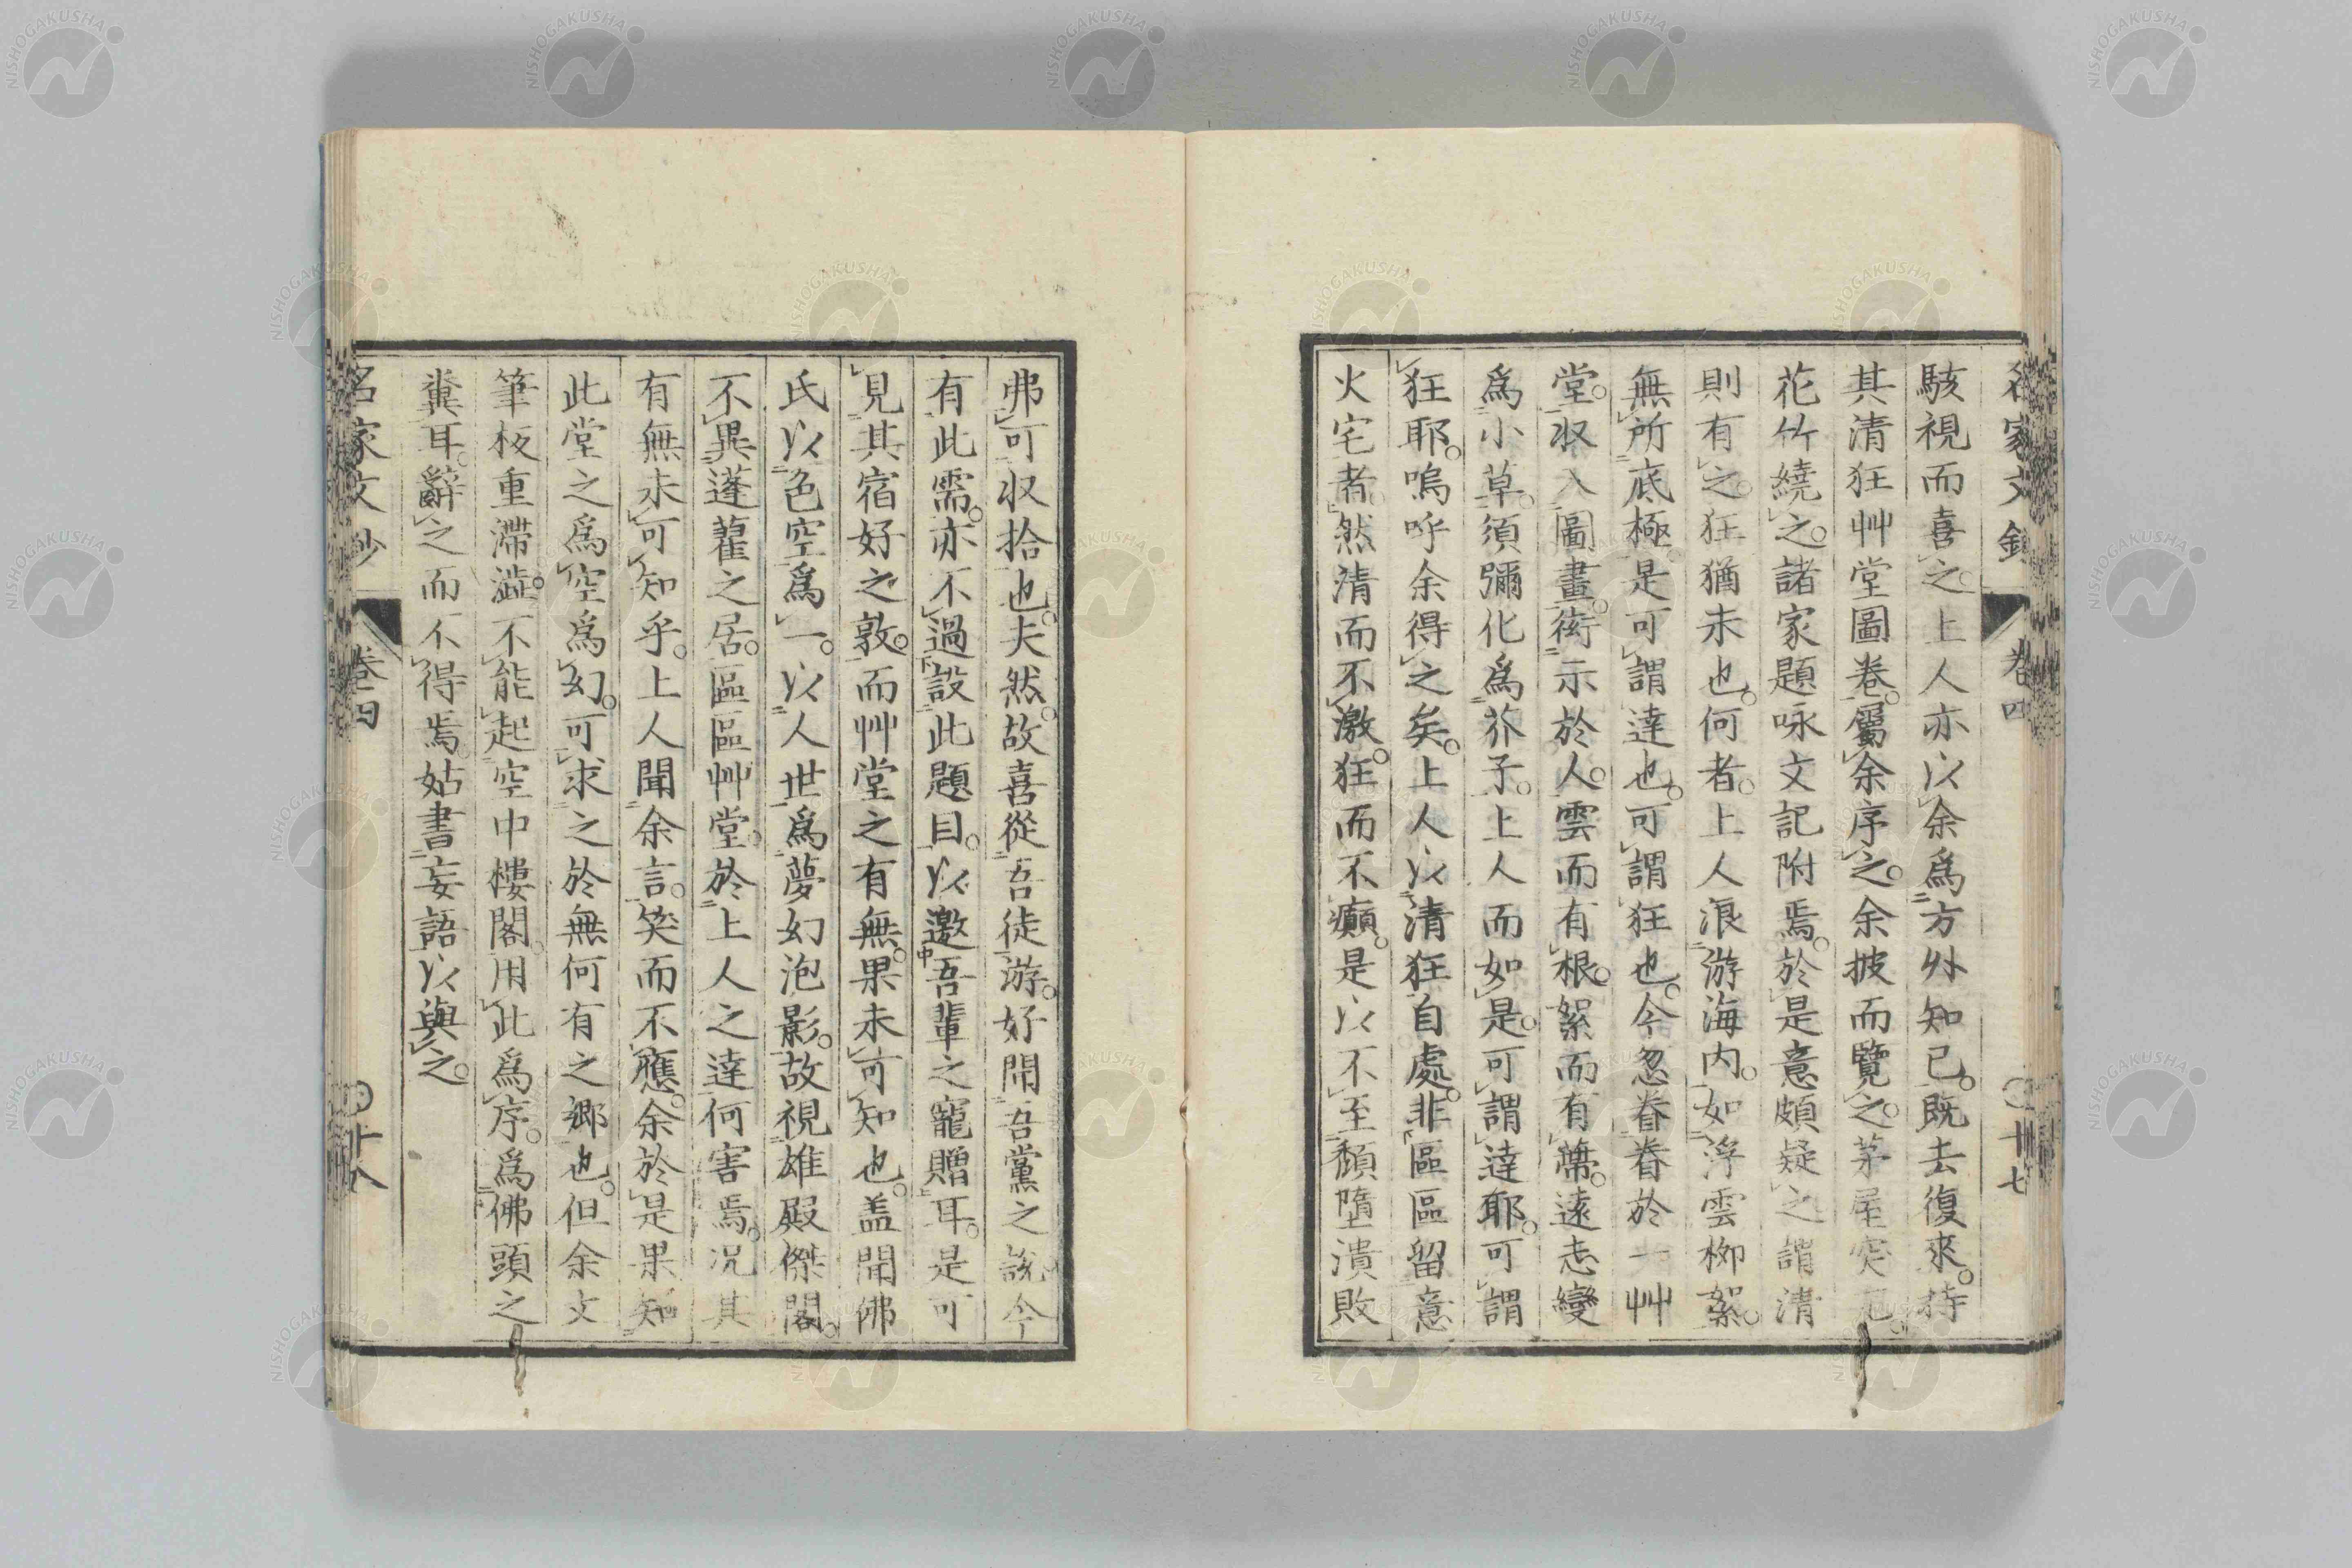 名家文鈔 卷四 〇十七
駭視而喜之上人亦以余爲方外知己。既去復來。持
其清狂艸堂圖卷。屬余序之。余披而覽之。茅屋突兀。
花竹繞之。諸家題咏文記附焉。於是意頗疑之謂清
則有之。狂猶未也。何者。上人浪游海内。如浮雲柳絮。
無所底極。是可謂達也。可謂狂也。今忽眷眷於一艸
堂。収入圖畫。衒示於人。雲而有根。絮而有蔕。遠志變
爲小草。須彌化爲芥子。上人而如是。可謂達耶。可謂
狂耶。嗚呼余得之矣。上人以清狂自處。非區區留意
火宅者。然清而不激。狂而不癲。是以不至頽墮潰敗
弗可収拾也。夫然。故喜從吾徒游。好聞吾黨之説。今
有此需。亦不過設此題目。以邀吾輩之寵贈耳。是可
見其宿好之敦。而艸堂之有無。果未可知也。盖聞佛
氏以色空爲一。以人世爲夢幻泡影。故視雄殿傑閣。
不異蓬藋之居。區區艸堂。於上人之達何害焉。况其
有無未可知乎。上人聞余言。笑而不應。余於是果知
此堂之爲空爲幻。可求之於無何有之郷也。但余文
筆板重滯澁。不能起空中樓閣。用此爲序。爲佛頭之
糞耳。辭之而不得焉。姑書妄語以與之。
名家文鈔 卷四 〇十八